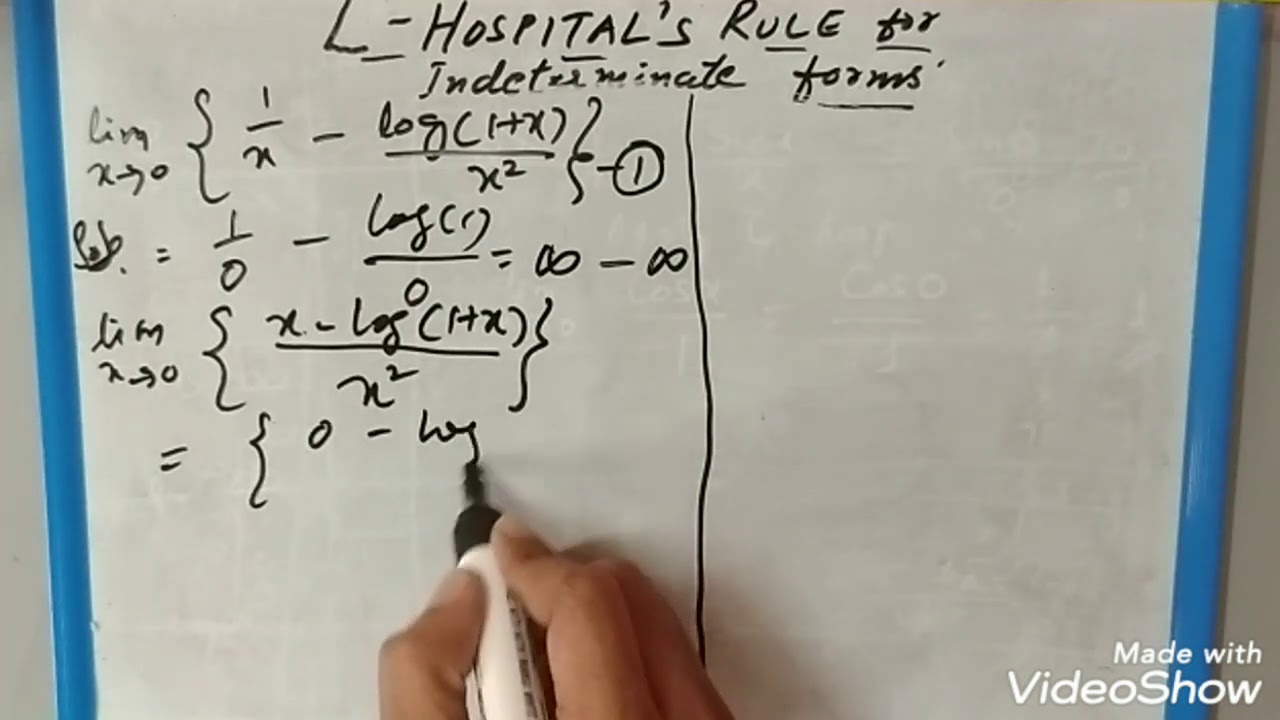 L-HOSPITAL'S RULE for
Indeterminate forms
lim x→0 { 1/x - log(1+x)/x² } -①
= 1/0 - log(1)/0 = ∞ - ∞
lim x→0 { x - log(1+x)/x² }
= { 0 - log
Made with
VideoShow